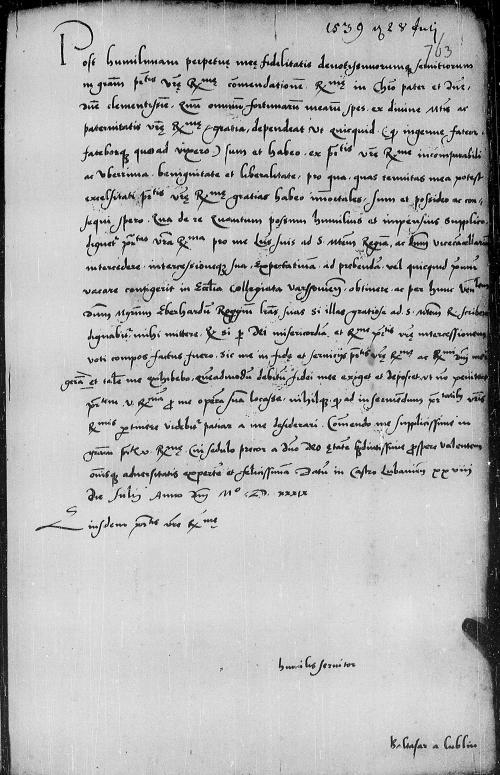 1539 28 Julij
763
Post humilimam perpetuę meę fidelitatis devotissimorumque servitiorum
in gratiam vrę Rmę comendationem. Rme in Chro pater et Dne,
Dne clementissime. Cum omnium fortunarum mearum spes, ex divine Mtis ac
paternitatis vrę Rmę gratia, dependeat, Ut quicquid (q ingenue fateor,
faterborque quoad vixero) sum et habeo, ex vrę Rme incomparabili
ac uberrima, benignitate et liberalitate, pro qua, quas tenuitas mea potest
excelsitati vrę Rmę gratias habeo immortales, sum et possideo ac con=
sequi spero. Qua de re Quantum possum humilius et impensius supplico,
vra Rma pro me suis ad S. Mtem Regiam, ac vicecancellarium
intercedere, intercessioneque sua, Expectativam, ad prebendam, vel quicquid primum
vacare contigerit in Ecclia Collegiata Varsovien, obtinere, ac per hunc
Dnm Eberhardum Roggium lras suas si illas gratiose ad. S. Mtem R. scribere
dignabitur, mihi mittere. Et si Dei misericordia, et Rme vrę intercessionem
voti compos factus fuero, sic me in fide et servicijs vrę Rmę, ac
geram et talem me exhibebo, quemadmodum debitum fidei mee exiget et deposcet, ut non peniteat
v. Rmam pro me opera sua locasse, nihilque quod ad inserviendum vris
Rmis pertinere videbitur, patiar a me desiderari. Comendo me supplicissime in
gratiam v. Rmę, Cui sedulo precor a Dno Deo ętatem prospere valentem
omnisque adversitatis expertem et felicissimam. Datum in Castro Lubavien XXVIII
Die Julij Anno Dni Mo. D. XXXIX
Eiusdem vre Rmę
humilis servitor
Baltasar a Lublin